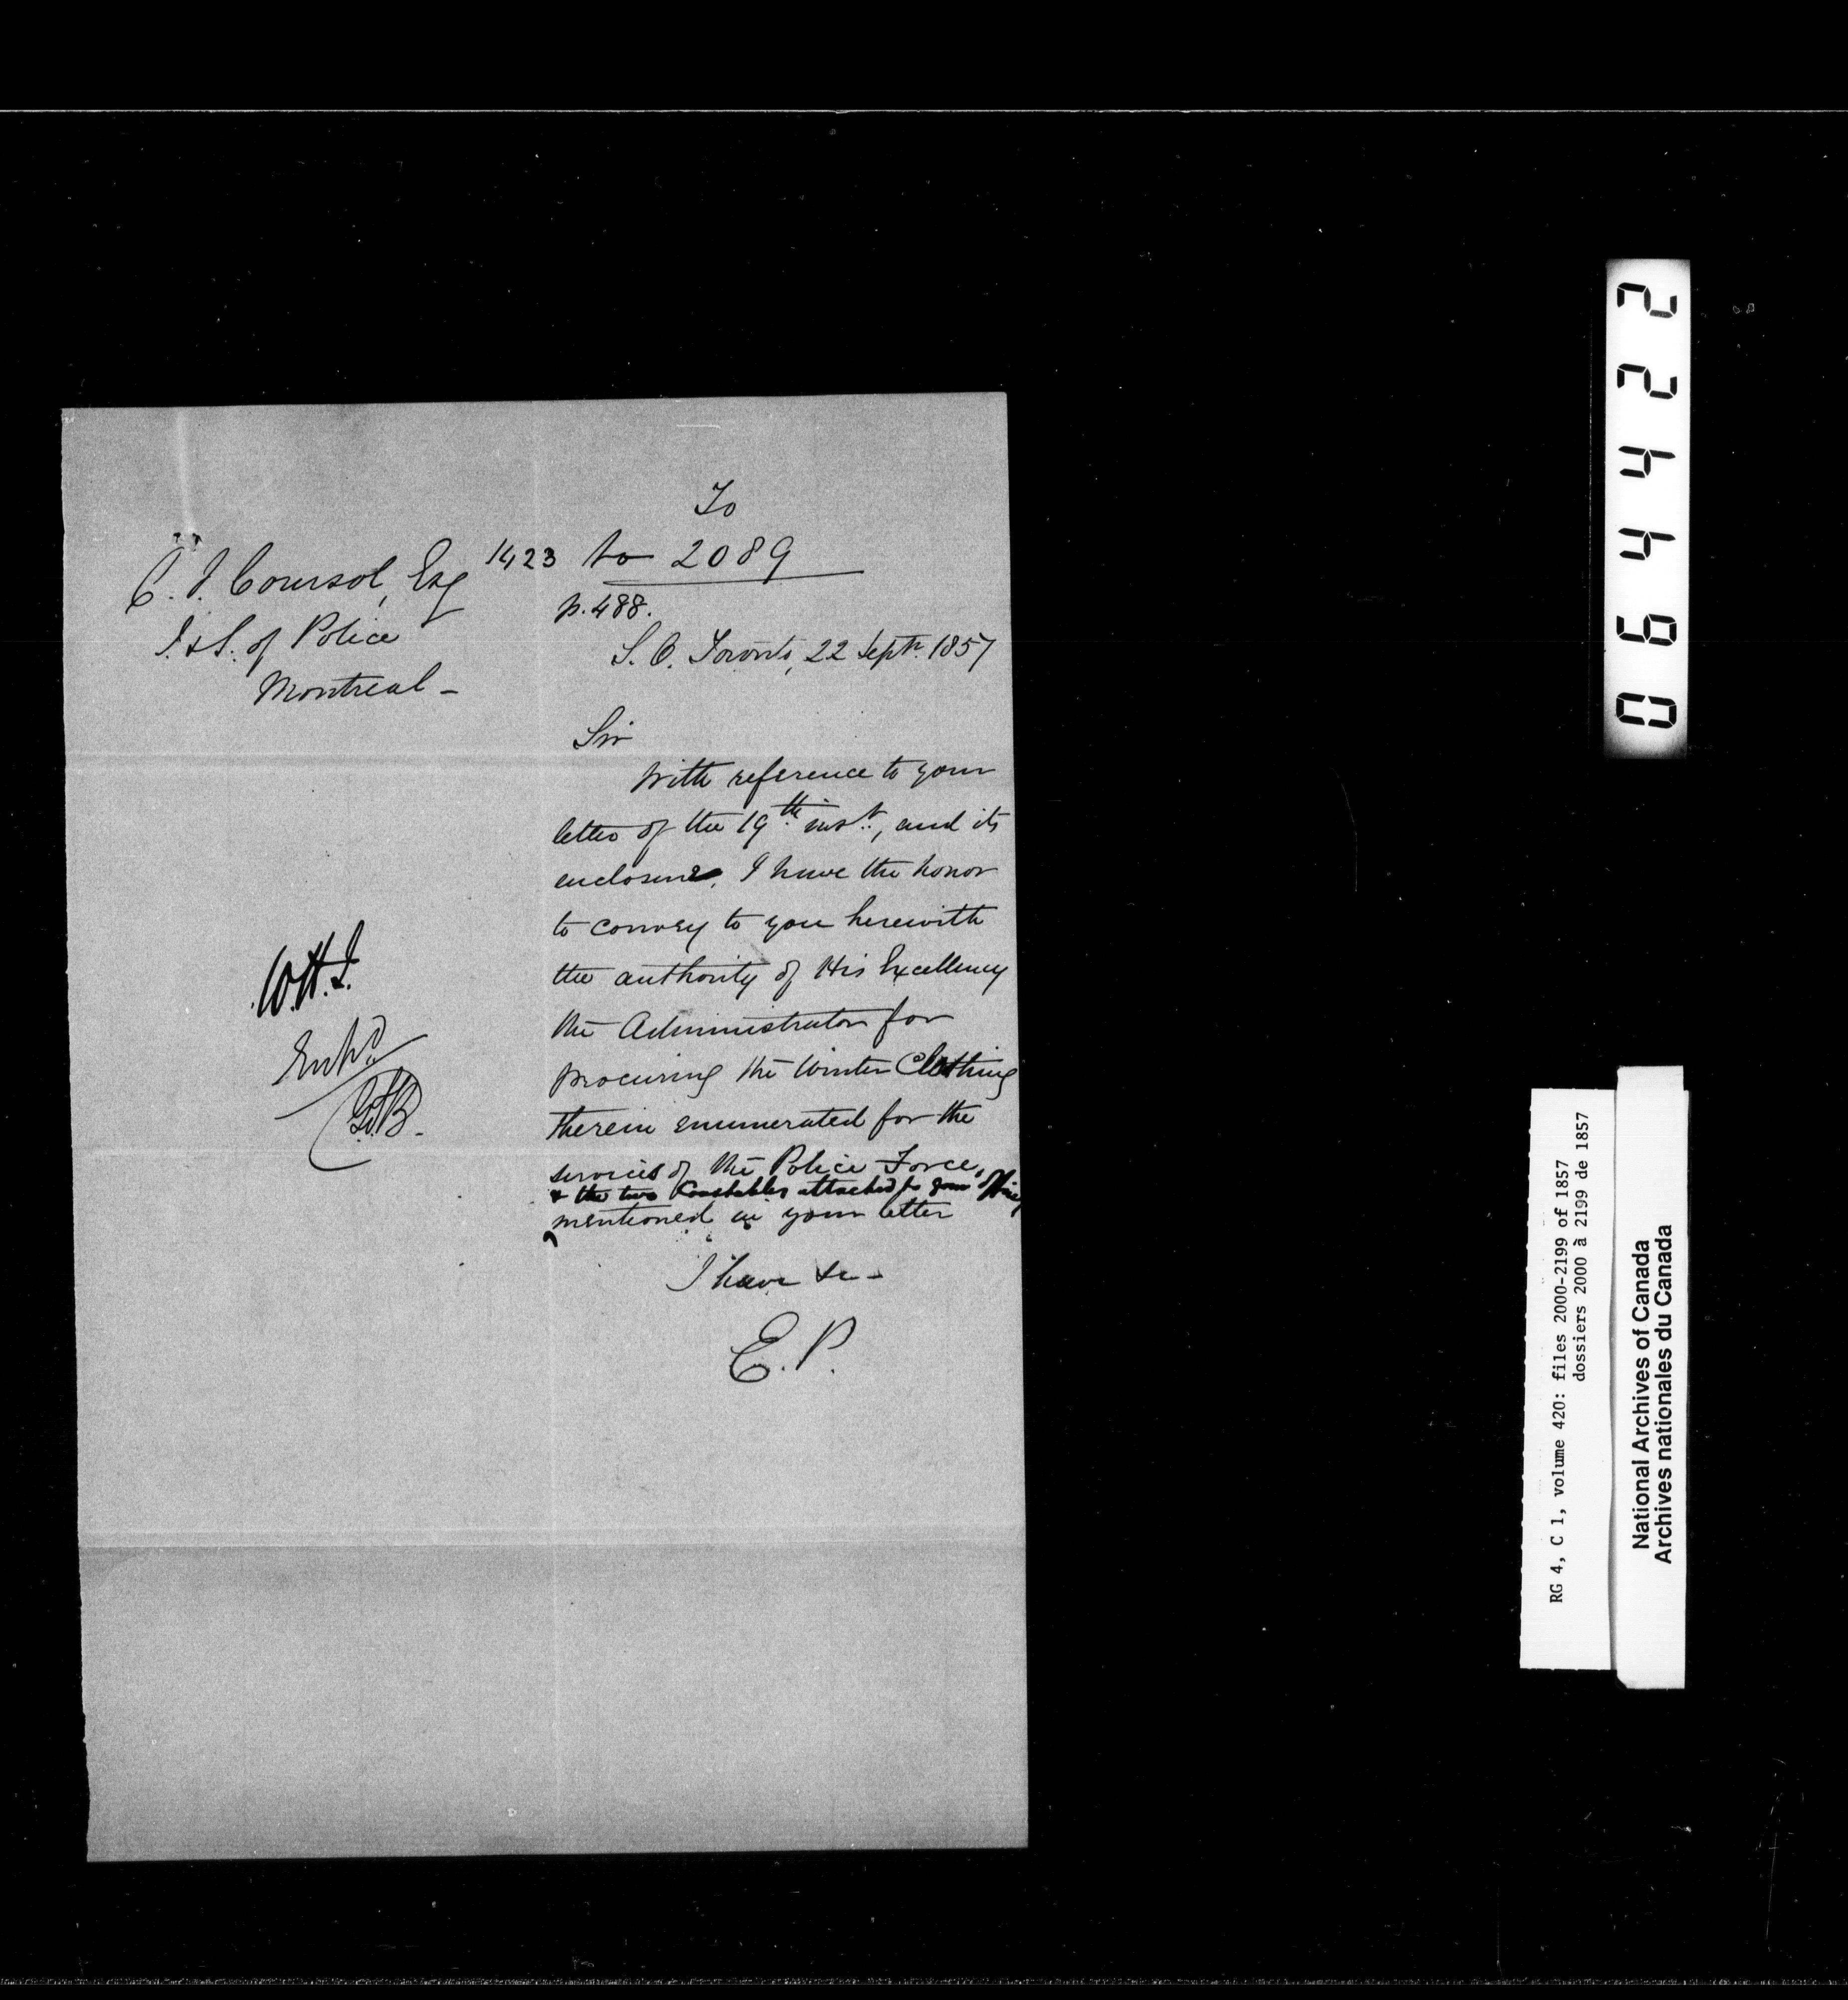 To
1423 to 2089
p. 488.
C. J. Coursol, Esq
I. & S. of Police
Montreal -
S. O. Toronto, 22 Septr. 1857
Sir
With reference to your
letter of the 19th inst., and its
enclosure, I have the honor
to convey to you herewith
the authority of His Excellency
the Administrator for
procuring the Winter Clothing
therein enumerated for the
services of the Police Force,
& the two Constables attached to your Office
mentioned in your letter
I have &c -
E. P.
W.H.J.
Entd.
G.H.B.
064422
RG 4, C 1, volume 420: files 2000-2199 of 1857
dossiers 2000 à 2199 de 1857
National Archives of Canada
Archives nationales du Canada